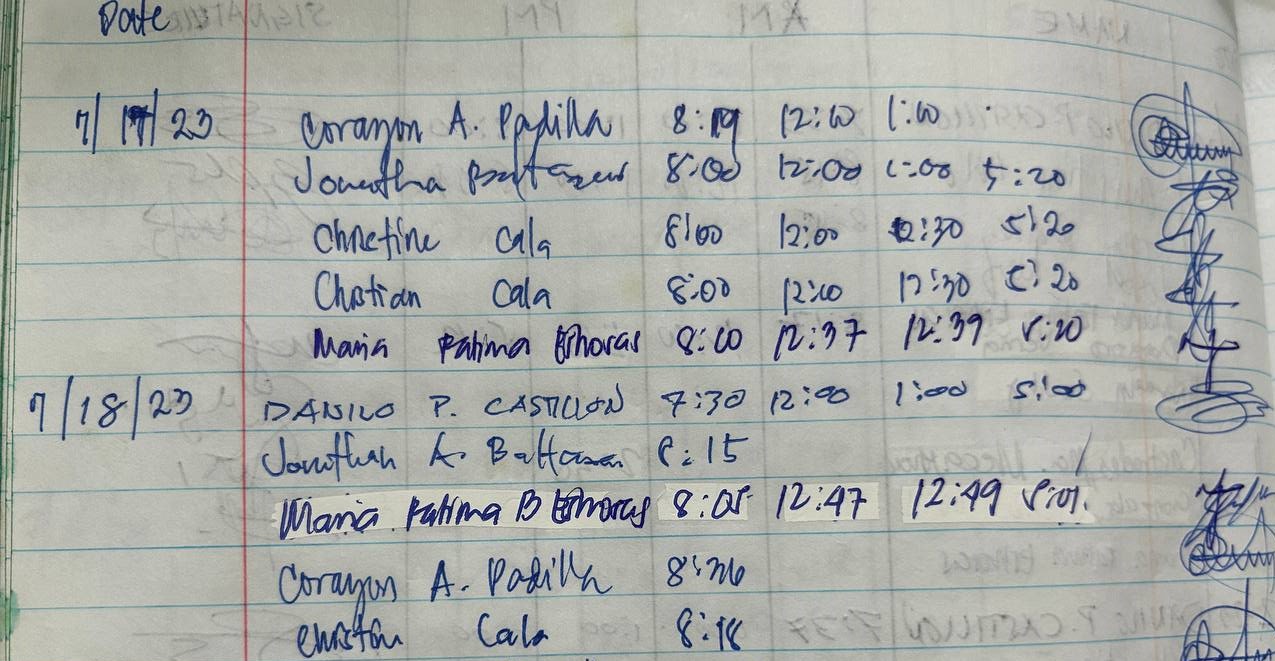 Date
7/17/23 Corazon A. Padilla 8:19 12:10 1:10
Jonatha Baltazar 8:00 12:00 1:00 5:20
Christine Cala 8:00 12:00 12:30 5:20
Christian Cala 8:00 12:00 12:30 5:20
Maria Fatima 8:00 12:37 12:39 5:20
7/18/23 DANILO P. CASTILLON 7:30 12:00 1:00 5:00
Jonathan A. Baltazar 8:15
Maria Fatima B 8:05 12:47 12:49 5:01
Corazon A. Padilla 8:36
Cala 8:18